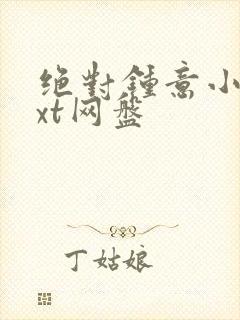 绝对鍾意小
xt网盘
丁姑娘